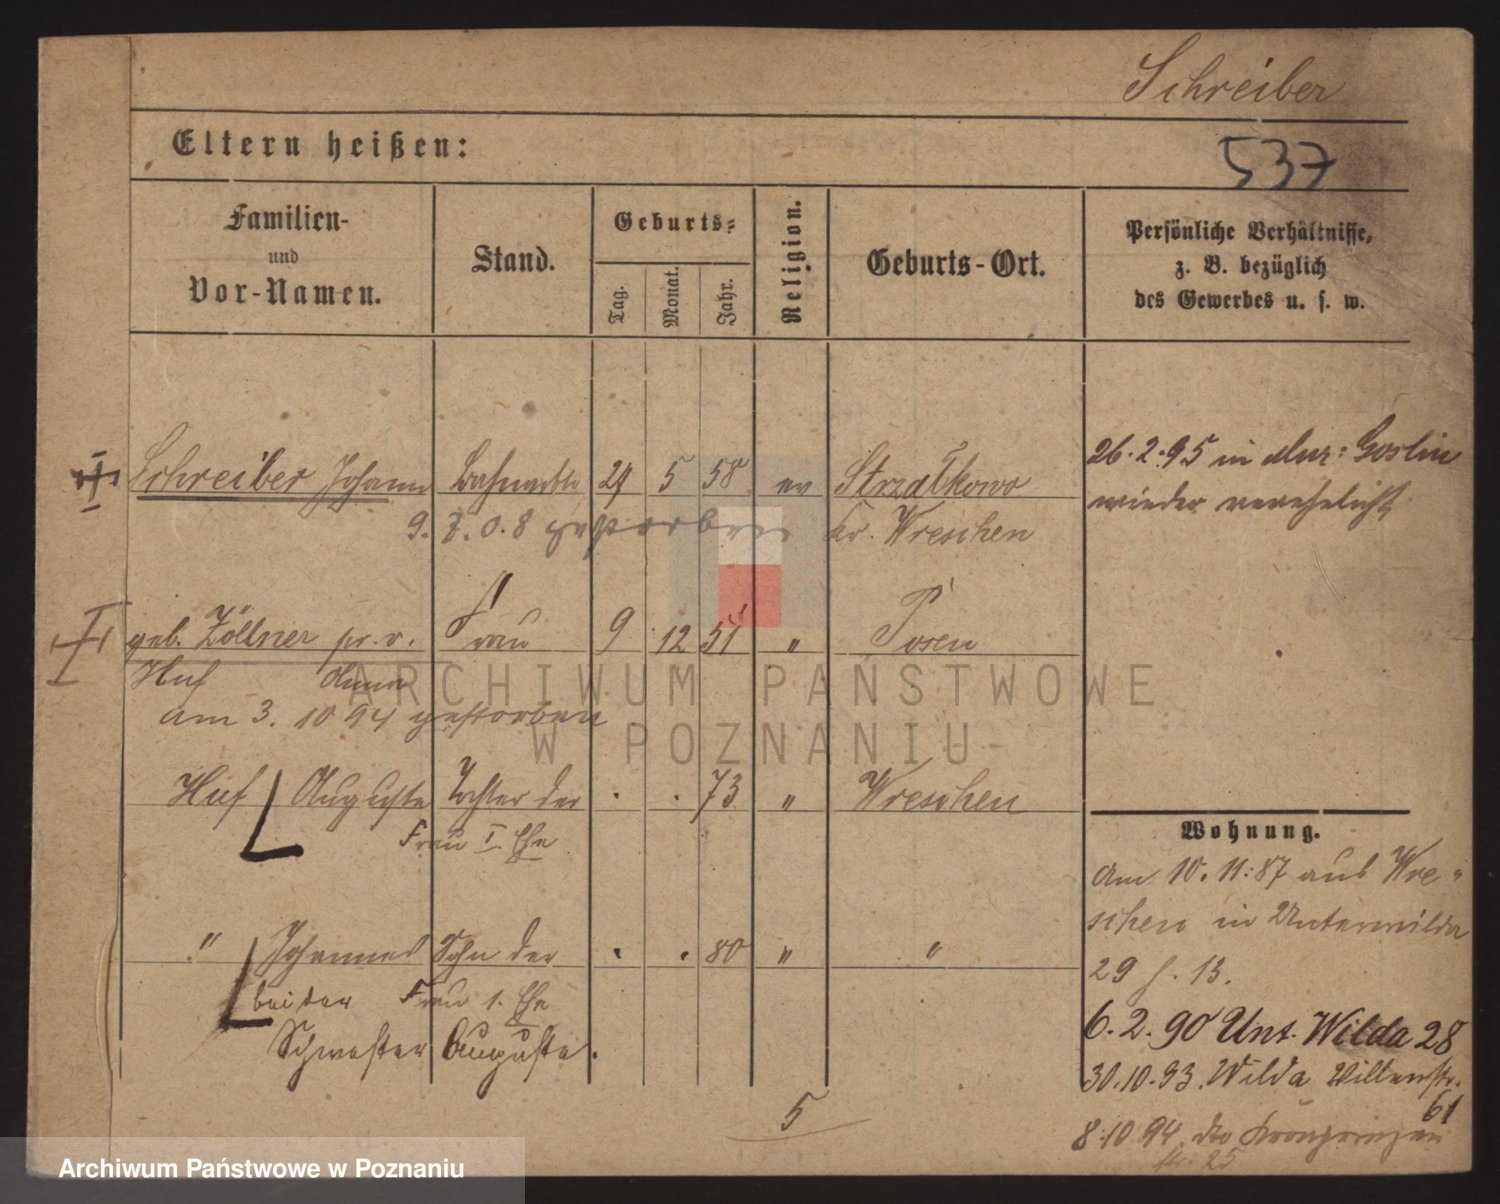 Schreiber
537
Eltern heißen:
Familien- und Vor-Namen.
Stand.
Geburts-
Tag.
Monat.
Jahr.
Religion.
Geburts-Ort.
Persönliche Verhältnisse,
z. B. bezüglich
des Gewerbes u. s. w.
Schreiber Johann 29 5 58 ev Strzałkowo
9. 7. 08 gestorben Kr. Wreschen
26.2.95 in Mur: Goslin
wieder verehelicht
geb. Zöllner pr. v. Frau 9 12 51 " Posen
Huf Anna
am 3. 10 94 gestorben
Huf Auguste Tochter der . . 73 " Wreschen
Frau I. Ehe
" Johannes Sohn der . . 80 " "
Frau 1. Ehe
Schwester Auguste.
5
Wohnung.
Am 10. 11. 87 aus Wre-
schen in Unterwilda
29 13.
6.2.90 Unt. Wilda 28
30.10.93. Wilda
61
8.10.94 dto Kronprinzen
str. 25
ARCHIWUM PAŃSTWOWE
W POZNANIU
Archiwum Państwowe w Poznaniu